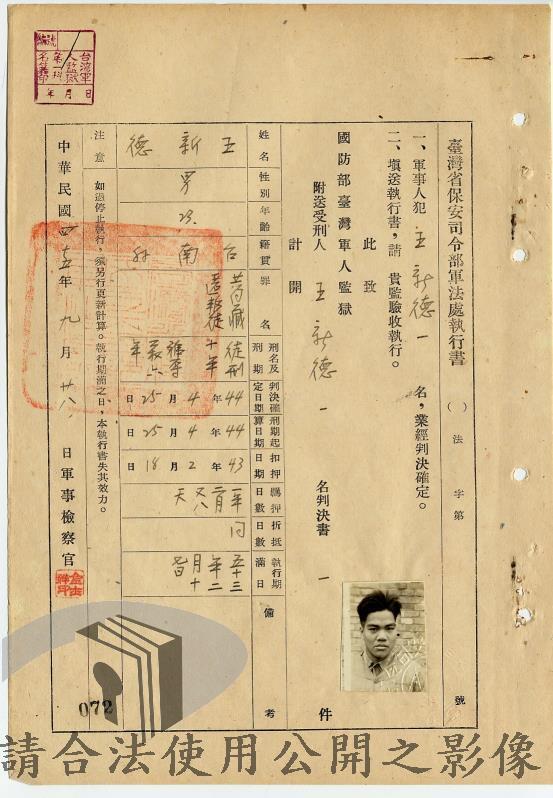 臺灣省保安司令部軍法處執行書
( ) 法 字第 號
一、軍事人犯 王新德 一 名,業經判決確定。
二、填送執行書,請 貴監驗收執行。
此致
國防部臺灣軍人監獄
附送受刑人 王新德 一 名判決書 一 件
計開
姓名 性別 年齡 籍貫 罪名 刑名及刑期 判決確定日期 刑期起算日期 扣押日期 羈押日數 折抵日數 執行期滿日 備考
王新德
男
台南
徒刑十年
44年4月25日
44年4月25日
43年2月18日
同
五十三年二月十
注意 如遇停止執行,須另行更新計算。執行期滿之日,本執行書失其效力。
中華民國四十五年九月廿八日軍事檢察官
台灣軍人監獄
第一科
年 月 日
072
請合法使用公開之影像